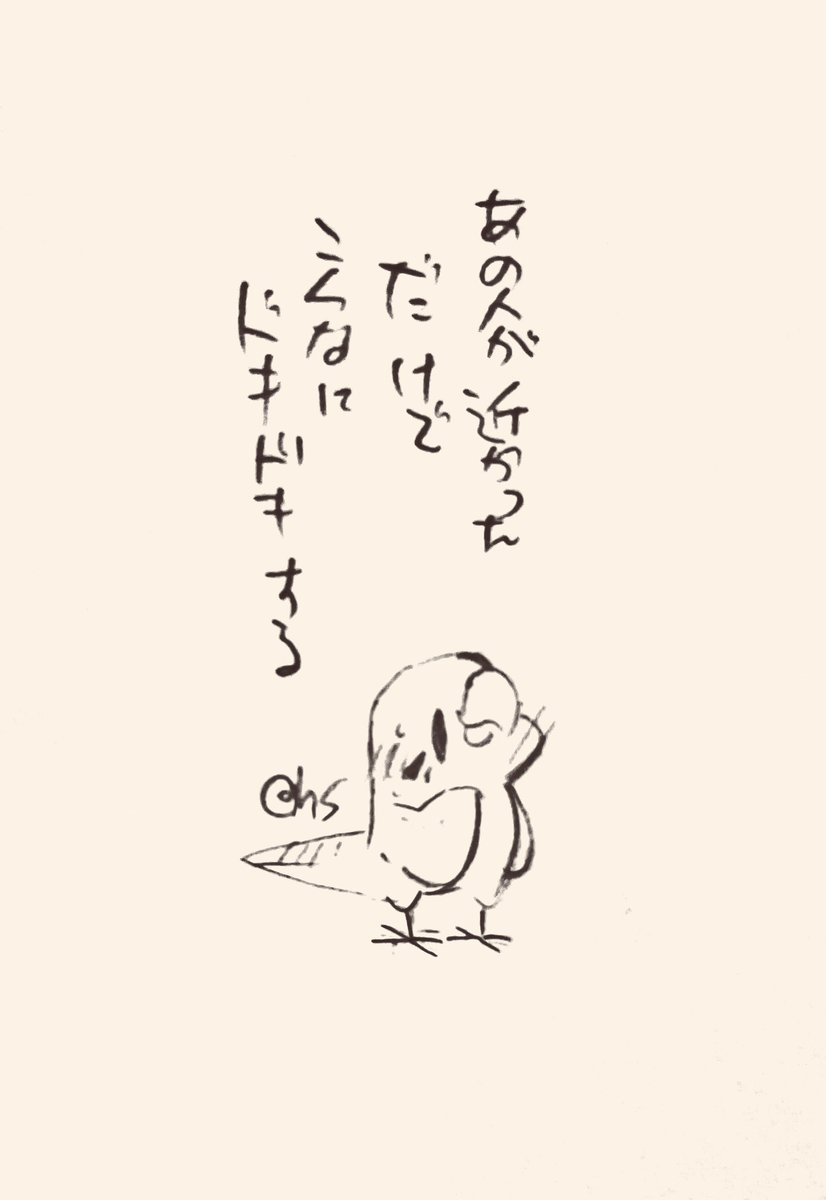 あの人が近かった
だけで
こんなに
ドキドキする
@hs